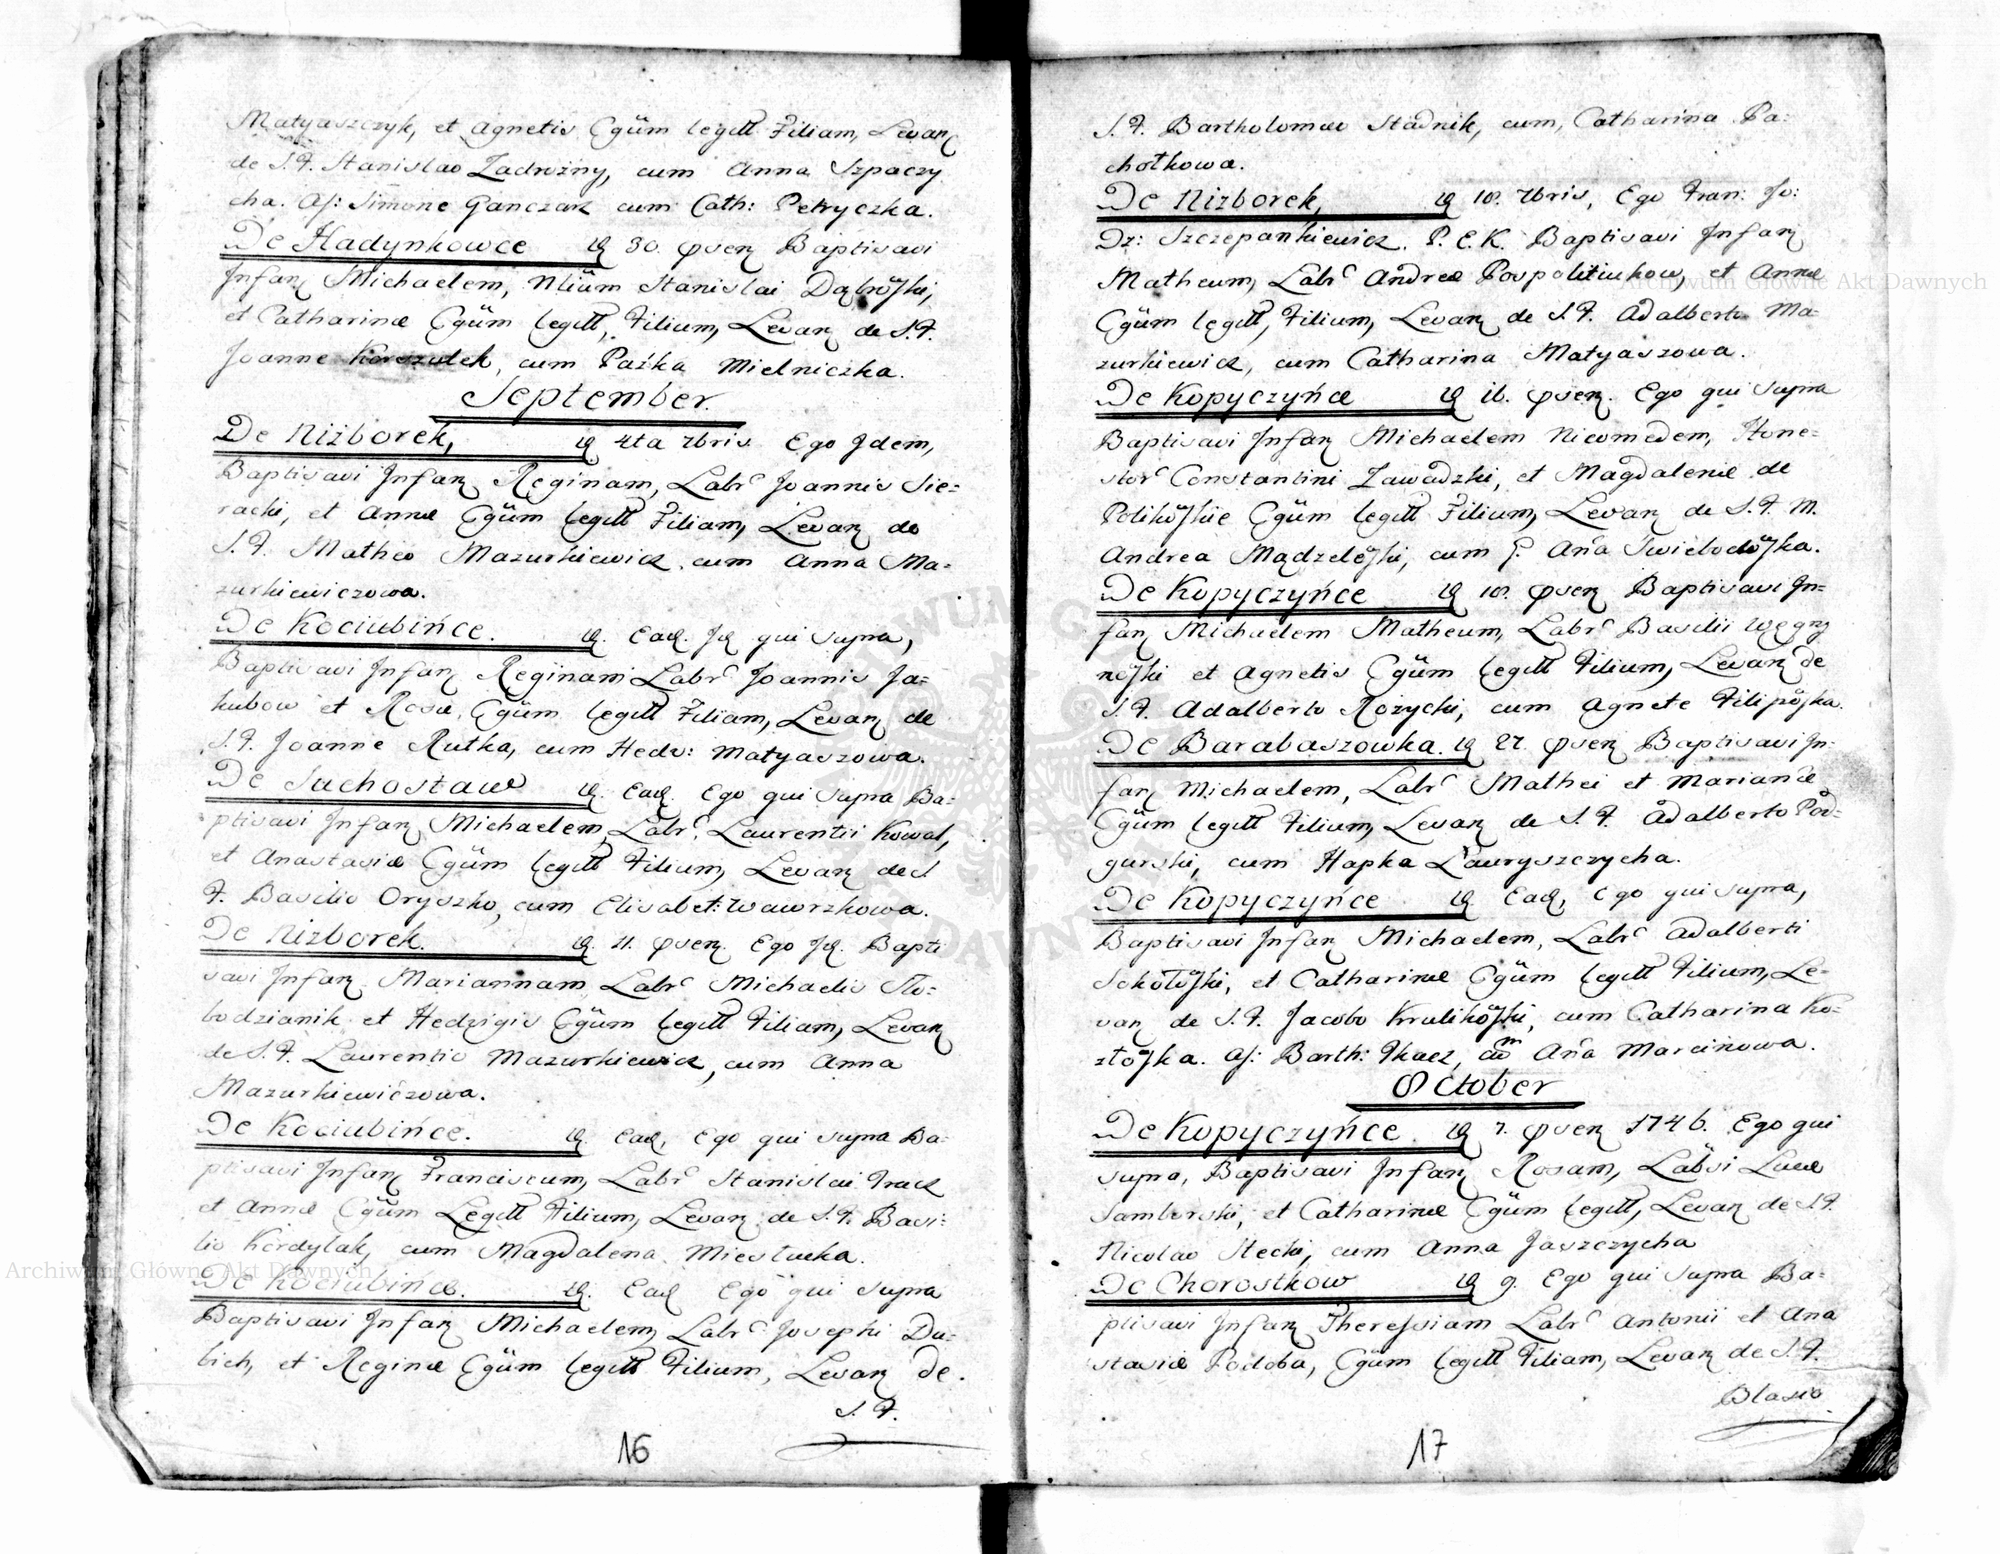 Matyaszczyk, et Agnetis Cgüm legitt Filiam, Levan
de S. F. Stanislao Zadrożny, cum Anna Szpaczy
cha. As: Simone Ganczarz cum Cath: Petryczka.
De Hadynkowce id 30. qven Baptisavi
Infan Michaelem, Nlium Stanislai Dąbrowski,
et Catharinæ Cgüm legitt, Filium, Levan de S. F.
Joanne cum Paźka Mielniczka.
September.
De Niżborek, id 4ta 7bris Ego Idem,
Baptisavi Infan Reginam, Labr Joannis Sie=
racki, et Annæ Cgüm legitt Filiam, Levan de
S. F. Matheo Mazurkiewicz cum Anna Ma=
zurkiewiczowa.
De Kociubińce. id. Ead. Id qui supra,
Baptisavi Infan Reginam Labr Joannis Ja=
kubow et Rosæ, Cgüm legitt Filiam, Levan de
S. F. Joanne Rutka, cum Hedv: Matyaszowa.
De Suchostaw id. Ead. Ego qui supra Ba=
ptisavi Infan Michaelem, Labr, Laurentii Kowal,
et Anastasiæ Cgüm legitt Filium, Levan de S
F. Basilio Oryszko, cum Elisabet: Wawrzkowa.
De Niżborek. id. 11. qven. Ego Id. Bapti
savi Infan Mariannam Labr Michaelis Slo=
bodzianik et Hedzigis Cgüm legitt Filiam, Levan
de S. F. Laurentio Mazurkiewicz, cum Anna
Mazurkiewiczowa.
De Kociubińce. id. Ead, Ego qui supra Ba=
ptisavi Infan Franciscum, Labr Stanislai Tracz
et Annæ Cgüm Legitt Filium, Levan de S. F. Basi=
lio Kordylak, cum Magdalena
De Kociubińce. id. Ead Ego qui supra
Baptisavi Infan Michaelem, Labr Josephi Du=
bich, et Reginæ Cgüm legitt Filium, Levan de.
S. F.
16
S. F. Bartholomæo Stadnik, cum, Catharina Pa=
chołkowa.
De Niżborek, id 10. 7bris, Ego Fran: Jo:
Dz: Szczepankiewicz. P. E. K. Baptisavi Infan
Matheum, Labr Andreæ Pospolitiukow, et Annæ
Cgüm legitt, Filium, Levan de S. F. Adalberto Ma=
zurkiewicz, cum Catharina Matyaszowa.
De Kopyczyńce id 16. qven. Ego qui supra
Baptisavi Infan Michaelem Nicomedem, Hone=
stor Constantini Zawadzki, et Magdalenæ de
Polikowskie Cgüm legitt Filium, Levan de S. F. M.
Andrea Mądzelewski, cum G. Ana Swiebodowska.
De Kopyczyńce id 18. qven Baptisavi In=
fan Michaelem Matheum, Labr Basilii Węgry
nowski et Agnetis Cgüm legitt Filium, Levan de
S. F. Adalberto Rożycki, cum Agnete Filipowska.
De Barabaszowka. id 27. qven Baptisavi In=
fan Michaelem, Labr Mathei et Mariannæ
Cgüm legitt Filium, Levan de S. F. Adalberto Pod=
gurski, cum Hapka Lauryszczycha.
De Kopyczyńce id. Ead, Ego qui supra,
Baptisavi Infan Michaelem, Labr Adalberti
Sokołowski, et Catharinæ Cgüm legitt Filium, Le=
van de S. F. Jacobo Krulikowski, cum Catharina Ko=
złowska. As: Barth: Tkacz, cum Ana Marcinowa.
October
De Kopyczyńce id 7. qven 1746. Ego qui
supra, Baptisavi Infan Rosam, Labsi Lucæ
Samborski, et Catharinæ Cgüm legitt, Levan de S. F.
Nicolao Stecki, cum Anna Jaszczycha
De Chorostkow id 9. Ego qui supra Ba=
ptisavi Infan Theressiam Labr Antonii et Ana
stasiæ Podoba, Cgüm legitt Filiam, Levan de S. F.
Blasio
17
Archiwum Główne Akt Dawnych
Archiwum Główne Akt Dawnych